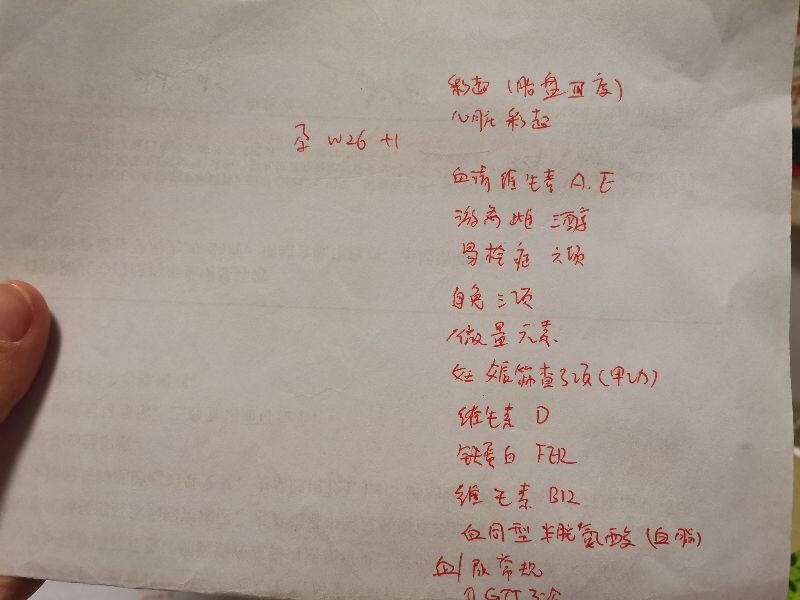 彩超（胎盘回度）
心脏彩超
孕 W26 +1
血清维生素 A.E
游离雌三醇
易栓症 六项
自免三项
微量元素
妊娠筛查3项(甲功)
维生素 D
铁蛋白 FER
维生素 B12
血同型半胱氨酸 (血脂)
血/尿常规